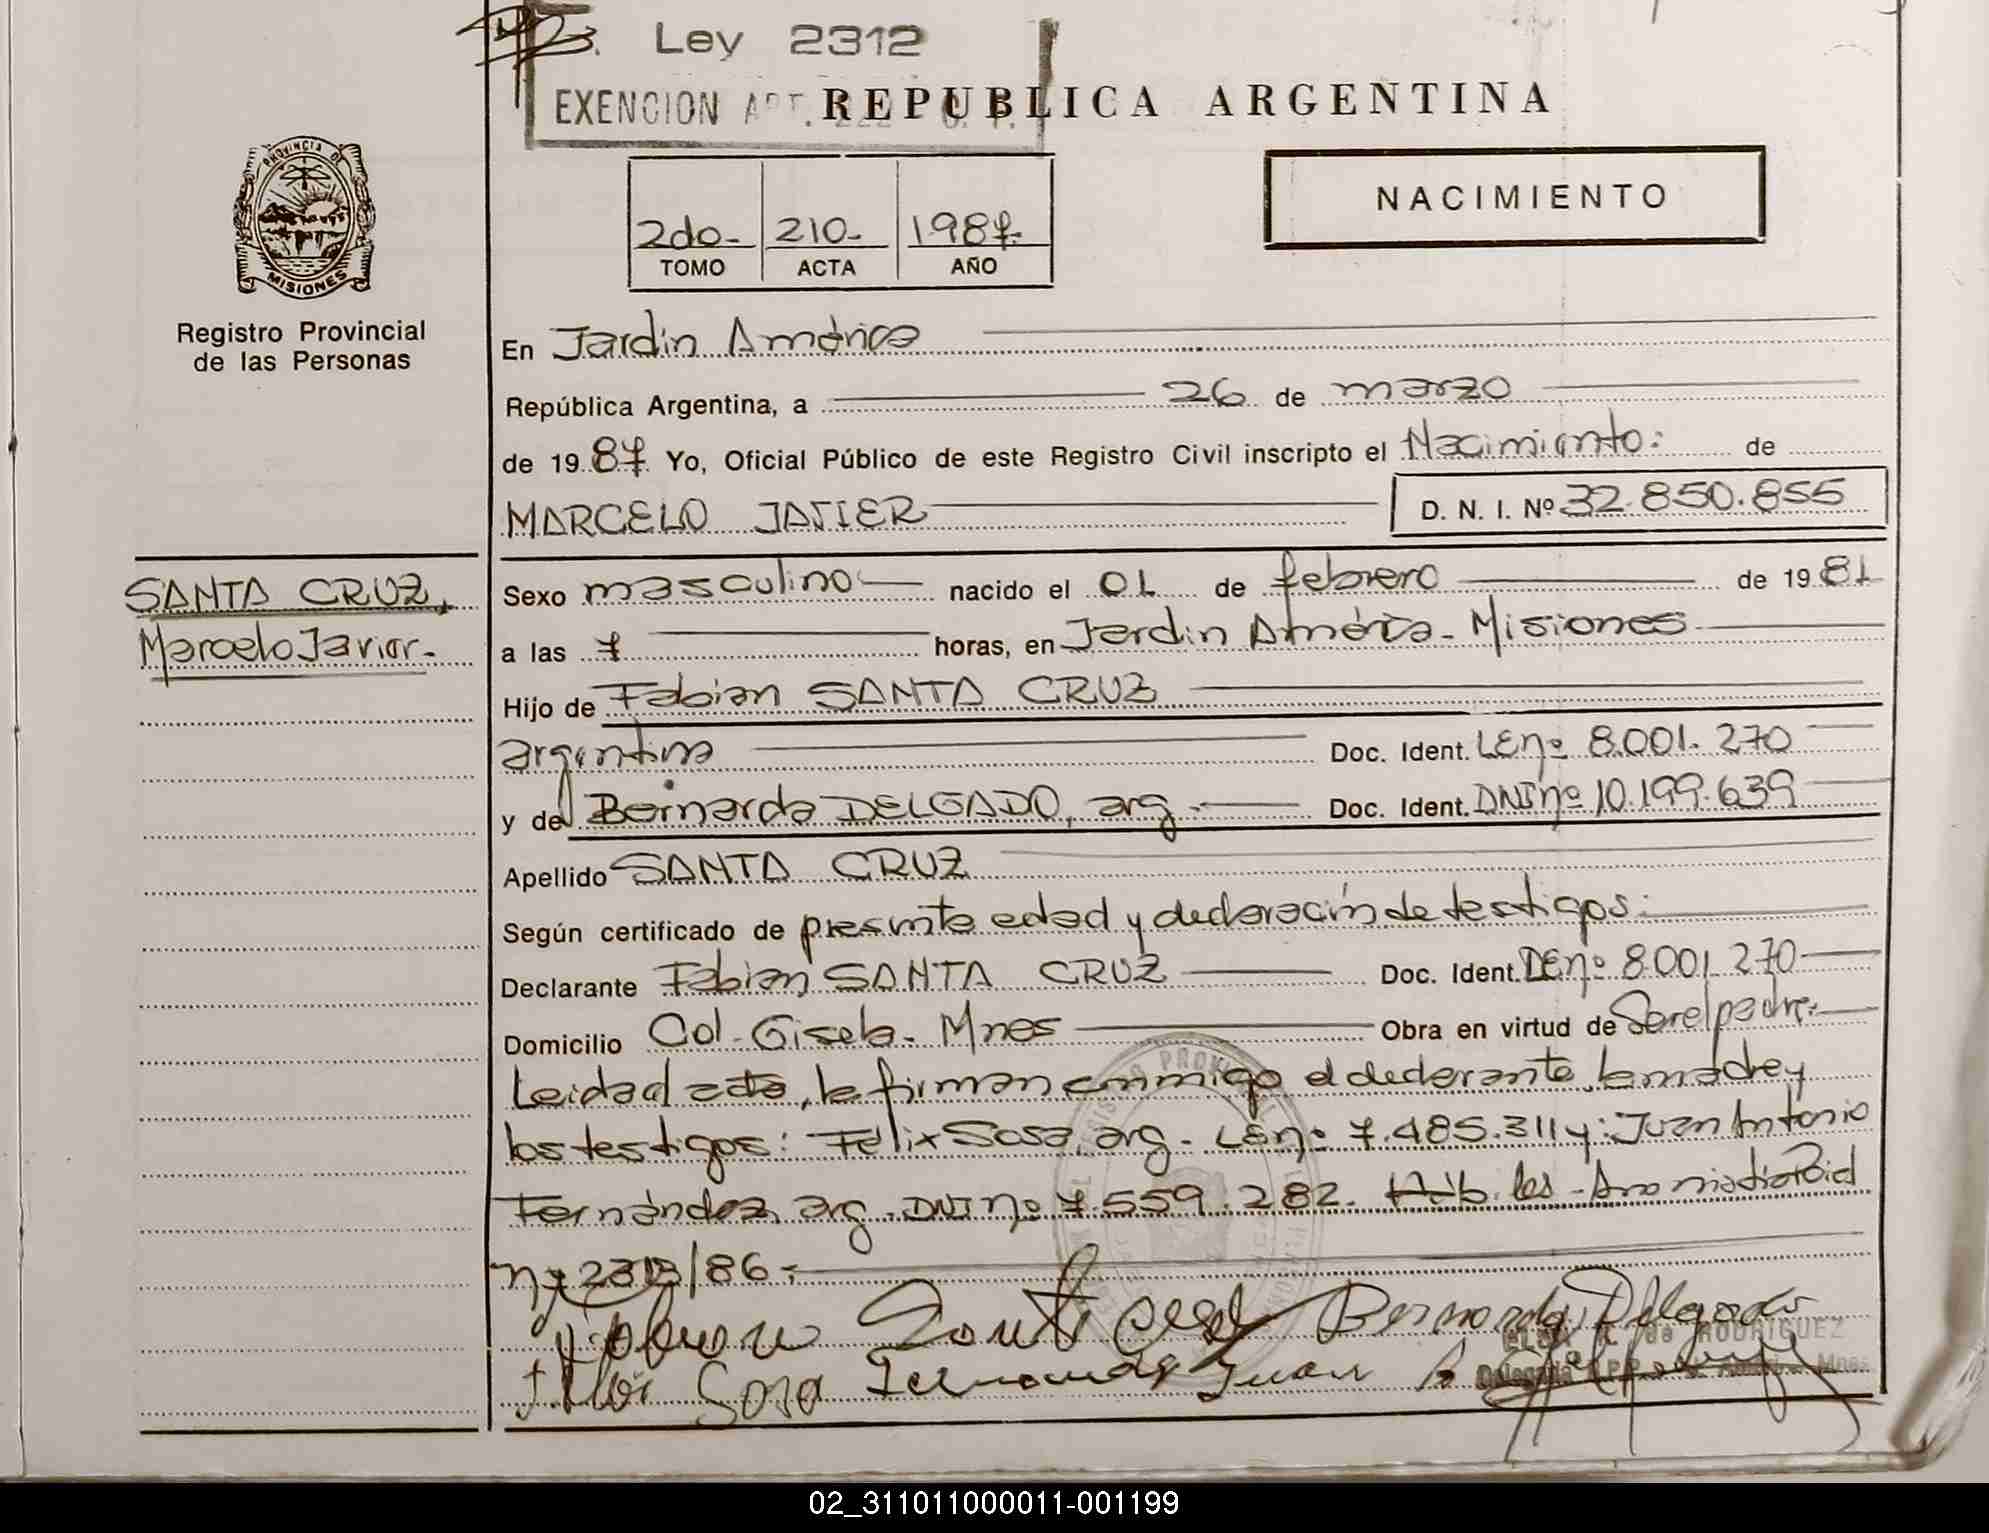 Ley 2312
EXENCION ART. 222 C. F.
REPUBLICA ARGENTINA
PROVINCIA DE
MISIONES
Registro Provincial
de las Personas
2do- 210- 1987-
TOMO ACTA AÑO
NACIMIENTO
En Jardín América
República Argentina, a 26 de marzo
de 1987. Yo, Oficial Público de este Registro Civil inscripto el Nacimiento: de
MARCELO JAVIER D. N. I. Nº 32.850.855
SANTA CRUZ,
Marcelo Javier.-
Sexo masculino nacido el 01 de febrero de 1981
a las 7 horas, en Jardín América- Misiones
Hijo de Fabian SANTA CRUZ
argentina Doc. Ident. LEnº 8.001.270
y de Bernarda DELGADO, arg. Doc. Ident. DNInº 10.199.639
Apellido SANTA CRUZ
Según certificado de presunta edad y declaración de testigos.-
Declarante Fabian SANTA CRUZ Doc. Ident. LEnº 8001 270
Domicilio Col- Gisela- Mnes Obra en virtud de Ser el padre.-
Leida el acta, la firman conmigo el declarante, la madre y
los testigos: Félix Sosa, arg. LEnº 7.485.311 y: Juan Antonio
Fernández, arg. DNI nº 7.559.282. Hábiles
/86.-
Bernarda Delgado
de RODRIGUEZ
Sosa Fernandez Juan A
02_311011000011-001199